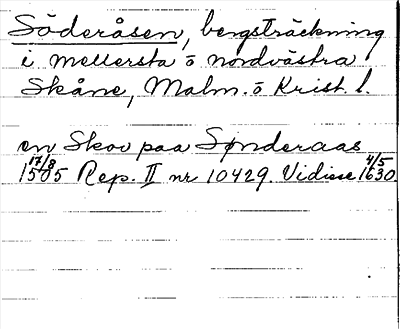 Söderåsen, bergsträckning
i mellersta o nordvästra
Skåne, Malm. o Krist. l.
en Skov paa Sønderaas
17/8 1505 Rep. II nr 10429. Vidisse 4/5 1630.